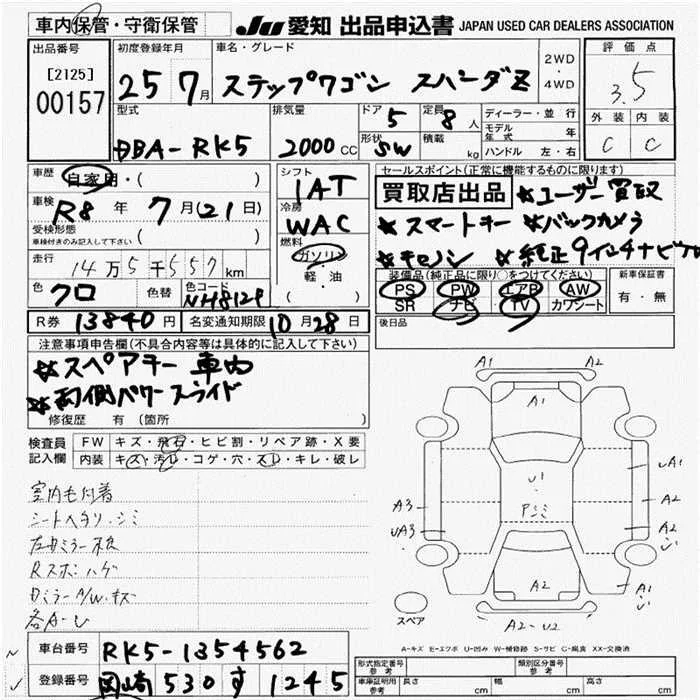 車内保管・守衛保管
JU 愛知 出品申込書 JAPAN USED CAR DEALERS ASSOCIATION
出品番号
[2125]
00157
初度登録年月
25 7月
車名・グレード
ステップワゴン スパーダZ
2WD
・
4WD
評価点
3.5
外装 内装
C C
型式
DBA-RK5
排気量
2000 CC
ドア 5
形状 SW
定員 8 人
積載 kg
ディーラー・並行
モデル年式 年
ハンドル 左・右
車歴 自家用・( )
車検 R8 年 7月(21日)
受検形態
車検付きのみ記入して下さい ( )
走行 14万5千557km
色 クロ 色替 色コード NH812P
シフト
IAT
冷房
WAC
燃料
ガソリン
軽・油
セールスポイント(正常に機能するものに限ります)
買取店出品 ★ユーザー買取
★スマートキー ★バックカメラ
★キセノン ★純正9インチナビTV
装備品(純正品に限り○をつけてください)
PS PW エアB AW
SR ナビ TV カワシート
新車保証書
有・無
R券 13840円 名変通知期限 10月28日
後日品
注意事項申告欄(不具合内容等は具体的に記入して下さい)
★スペアキー車内
★両側パワースライド
修復歴 有 (箇所 )
検査員記入欄
FW キズ・飛石・ヒビ割・リペア跡・X要
内装 キズ・汚レ・コゲ・穴・スレ・キレ・破レ
室内毛付着
シートヘタリ・シミ
Rスポハゲ
ミラーA/Wキズ
各A-U
A1 A2
A1
U1
Pシミ
A3
UA3
UA1
A2
A2
A2
A1
A2-U2
スペア
A-キズ E-エクボ U-凹み W-補修跡 S-サビ C-腐食 XX-交換済
車台番号 RK5-1354562
登録番号 岡崎 530 す 1245
形式指定番号 参考
類別区分番号 参考
車庫証明用 参考
長さ cm 幅 cm 高さ cm